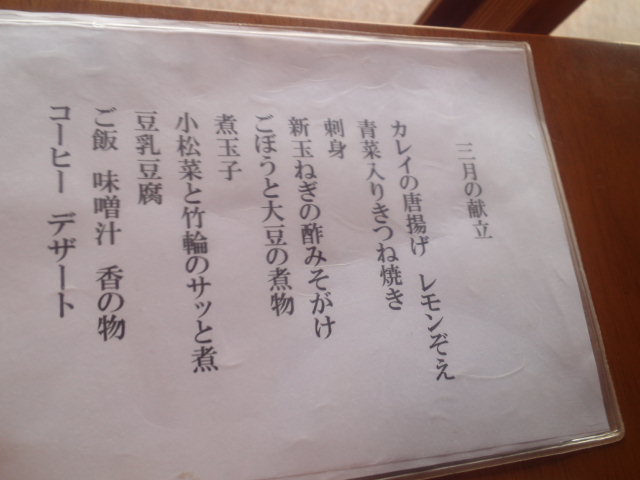 三月の献立
カレイの唐揚げ　レモンぞえ
青菜入りきつね焼き
刺身
新玉ねぎの酢みそがけ
ごぼうと大豆の煮物
煮玉子
小松菜と竹輪のサッと煮
豆乳豆腐
ご飯　味噌汁　香の物
コーヒー　デザート